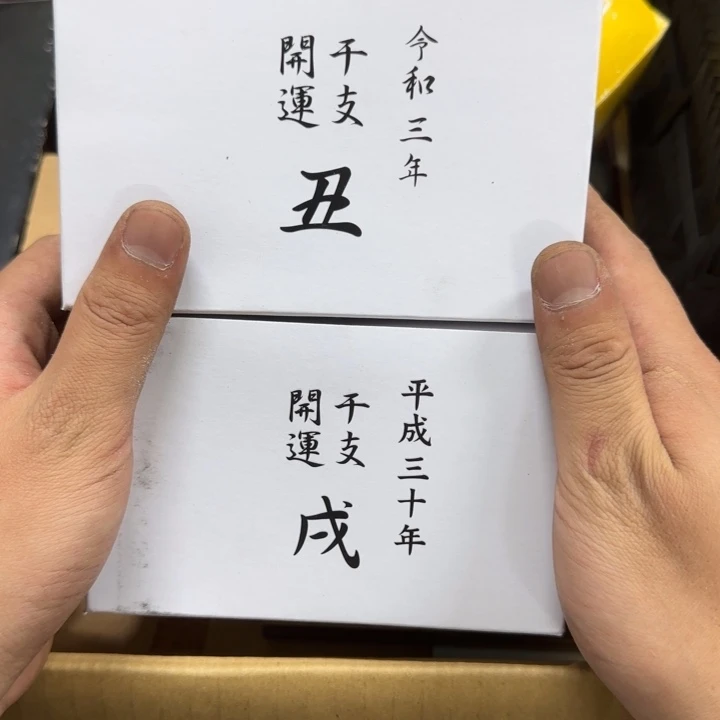 令和三年
干支
開運
丑
平成三十年
干支
開運
戌